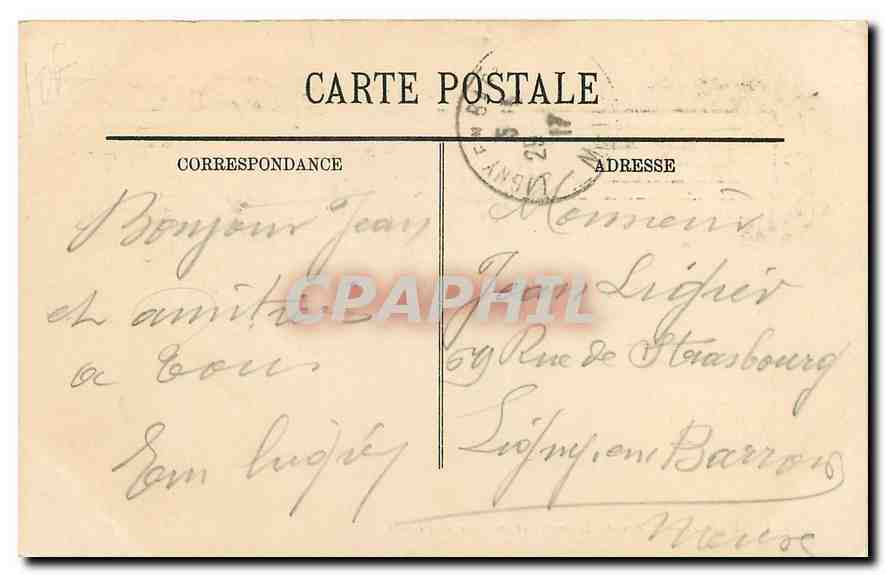 CARTE POSTALE
CORRESPONDANCE
Bonjour Jean
et amitiés
a Tous
Em
ADRESSE
Monsieur
Jean
59 Rue de Strasbourg
Ligny, en Barrois
Meuse
LIGNY EN
25
17
CPAPHIL